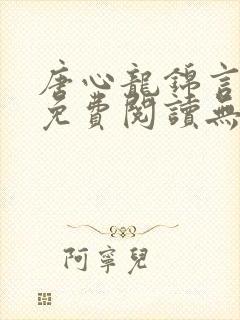 唐心龍錦言
免費閱讀無
阿寧兒